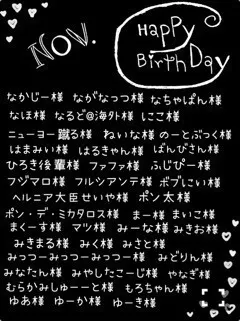 Nov.
Happy
Birthday
なかじー様 ながなっつ様 なちゃぱん様
なほ様 なると@海外様 にこ様
ニューヨー蹴る様 ねいな様 のーとぶっく様
はまみい様 はるきゃん様 ぱんぴさん様
ひろき後輩様 ファファ様 ふじぴー様
フジマロ様 フルシアンテ様 ポプにい様
ヘルニア大臣せいや様 ポン太様
ポン・デ・ミカタロス様 まー様 まいこ様
まくーす様 マツ様 みーな様 みきお様
みきまる様 みく様 みさと様
みっつーみっつーみっつー様 みどりん様
みなたん様 みやしたこーじ様 やなぎ様
むらかみしゅーーと様 もろちゃん様
ゆあ様 ゆーか様 ゆーき様